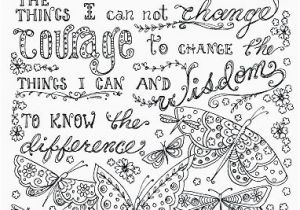 THE THINGS I can not change
courage to CHANGE the
THINGS I CAN AND
Wisdom
TO KNOW the
difference